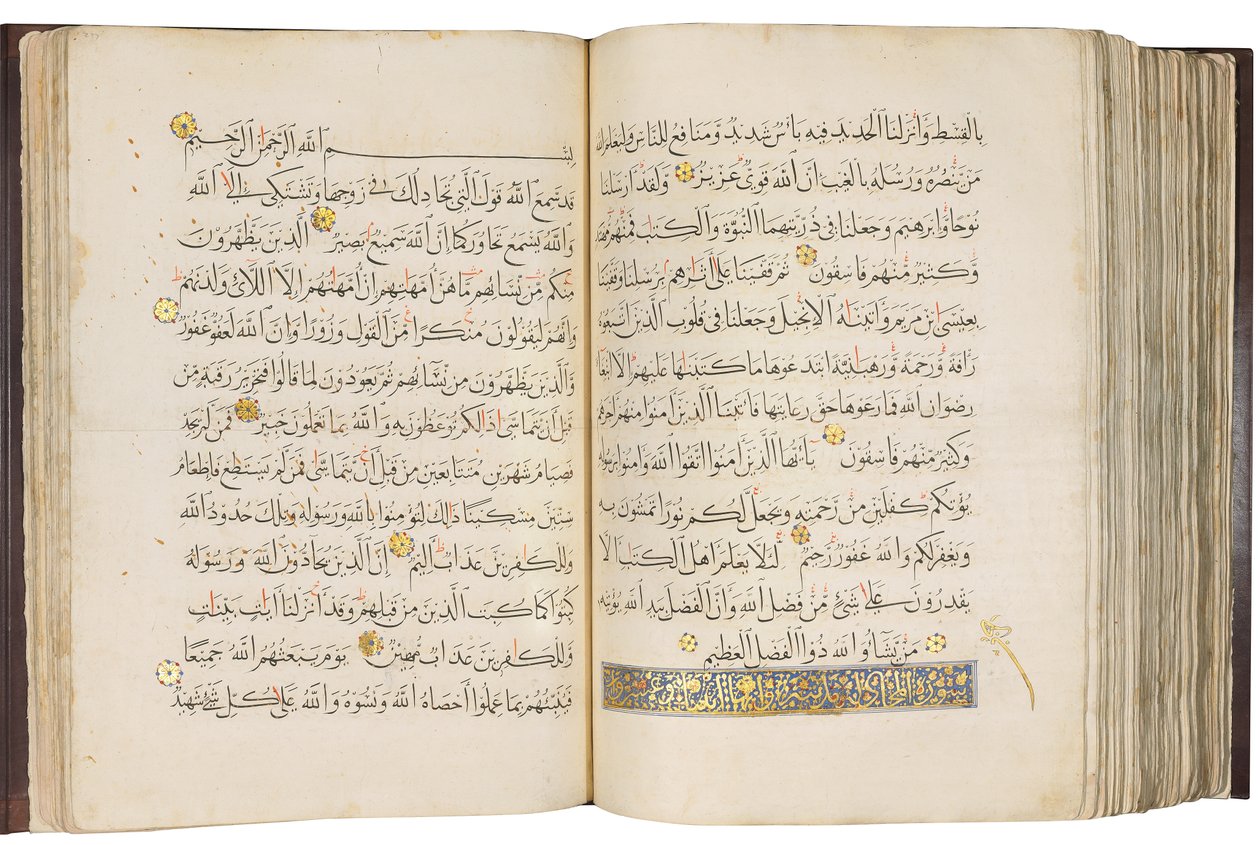 بِالْقِسْطِ وَأَنْزَلْنَا الْحَدِيدَ فِيهِ بَأْسٌ شَدِيدٌ وَمَنَافِعُ لِلنَّاسِ وَلِيَعْلَمَ اللهُ
مَنْ يَنْصُرُهُ وَرُسُلَهُ بِالْغَيْبِ إِنَّ اللهَ قَوِيٌّ عَزِيزٌ وَلَقَدْ أَرْسَلْنَا
نُوحًا وَإِبْرَهِيمَ وَجَعَلْنَا فِي ذُرِّيَّتِهِمَا النُّبُوَّةَ وَالْكِتَبَ فَمِنْهُمْ مُهْتَدٍ
وَكَثِيرٌ مِنْهُمْ فَاسِقُونَ ثُمَّ قَفَّيْنَا عَلَى أَثَارِهِمْ بِرُسُلِنَا وَقَفَّيْنَا
بِعِيسَى ابْنِ مَرْيَمَ وَأَتَيْنَاهُ الْإِنْجِيلَ وَجَعَلْنَا فِي قُلُوبِ الَّذِينَ اتَّبَعُوهُ
رَأْفَةً وَرَحْمَةً وَرَهْبَانِيَّةً ابْتَدَعُوهَا مَا كَتَبْنَاهَا عَلَيْهِمْ إِلَّا ابْتِغَاءَ
رِضْوَانِ اللهِ فَمَا رَعَوْهَا حَقَّ رِعَايَتِهَا فَأَتَيْنَا الَّذِينَ أَمَنُوا مِنْهُمْ أَجْرَهُمْ
وَكَثِيرٌ مِنْهُمْ فَاسِقُونَ يَاأَيُّهَا الَّذِينَ أَمَنُوا اتَّقُوا اللهَ وَأَمِنُوا بِرَسُولِهِ
يُؤْتِكُمْ كِفْلَيْنِ مِنْ رَحْمَتِهِ وَيَجْعَلْ لَكُمْ نُورًا تَمْشُونَ بِهِ
وَيَغْفِرْ لَكُمْ وَاللهُ غَفُورٌ رَحِيمٌ لِئَلَّا يَعْلَمَ أَهْلُ الْكِتَابِ أَلَّا
يَقْدِرُونَ عَلَى شَيْءٍ مِنْ فَضْلِ اللهِ وَأَنَّ الْفَضْلَ بِيَدِ اللهِ يُؤْتِيهِ
مَنْ يَشَاءُ وَاللهُ ذُو الْفَضْلِ الْعَظِيمِ
سورة المجادلة
بِسْمِ اللهِ الرَّحْمَنِ الرَّحِيمِ
قَدْ سَمِعَ اللهُ قَوْلَ الَّتِي تُجَادِلُكَ فِي زَوْجِهَا وَتَشْتَكِي إِلَى اللهِ
وَاللهُ يَسْمَعُ تَحَاوُرَكُمَا إِنَّ اللهَ سَمِيعٌ بَصِيرٌ الَّذِينَ يَظَّهَّرُونَ
مِنْكُمْ مِنْ نِسَائِهِمْ مَا هُنَّ أُمَّهَاتِهِمْ إِنْ أُمَّهَاتُهُمْ إِلَّا اللَّائِي وَلَدْنَهُمْ
وَإِنَّهُمْ لَيَقُولُونَ مُنْكَرًا مِنَ الْقَوْلِ وَزُورًا وَإِنَّ اللهَ لَعَفُوٌّ غَفُورٌ
وَالَّذِينَ يَظَّهَّرُونَ مِنْ نِسَائِهِمْ ثُمَّ يَعُودُونَ لِمَا قَالُوا فَتَحْرِيرُ رَقَبَةٍ مِنْ
قَبْلِ أَنْ يَتَمَاسَّا ذَالِكُمْ تُوعَظُونَ بِهِ وَاللهُ بِمَا تَعْمَلُونَ خَبِيرٌ فَمَنْ لَمْ يَجِدْ
فَصِيَامُ شَهْرَيْنِ مُتَتَابِعَيْنِ مِنْ قَبْلِ أَنْ يَتَمَاسَّا فَمَنْ لَمْ يَسْتَطِعْ فَإِطْعَامُ
سِتِّينَ مِسْكِينًا ذَالِكَ لِتُؤْمِنُوا بِاللهِ وَرَسُولِهِ وَتِلْكَ حُدُودُ اللهِ
وَلِلْكَافِرِينَ عَذَابٌ أَلِيمٌ إِنَّ الَّذِينَ يُحَادُّونَ اللهَ وَرَسُولَهُ
كُبِتُوا كَمَا كُبِتَ الَّذِينَ مِنْ قَبْلِهِمْ وَقَدْ أَنْزَلْنَا أَيَاتٍ بَيِّنَاتٍ
وَلِلْكَافِرِينَ عَذَابٌ مُهِينٌ يَوْمَ يَبْعَثُهُمُ اللهُ جَمِيعًا
فَيُنَبِّئُهُمْ بِمَا عَمِلُوا أَحْصَاهُ اللهُ وَنَسُوهُ وَاللهُ عَلَى كُلِّ شَيْءٍ شَهِيدٌ